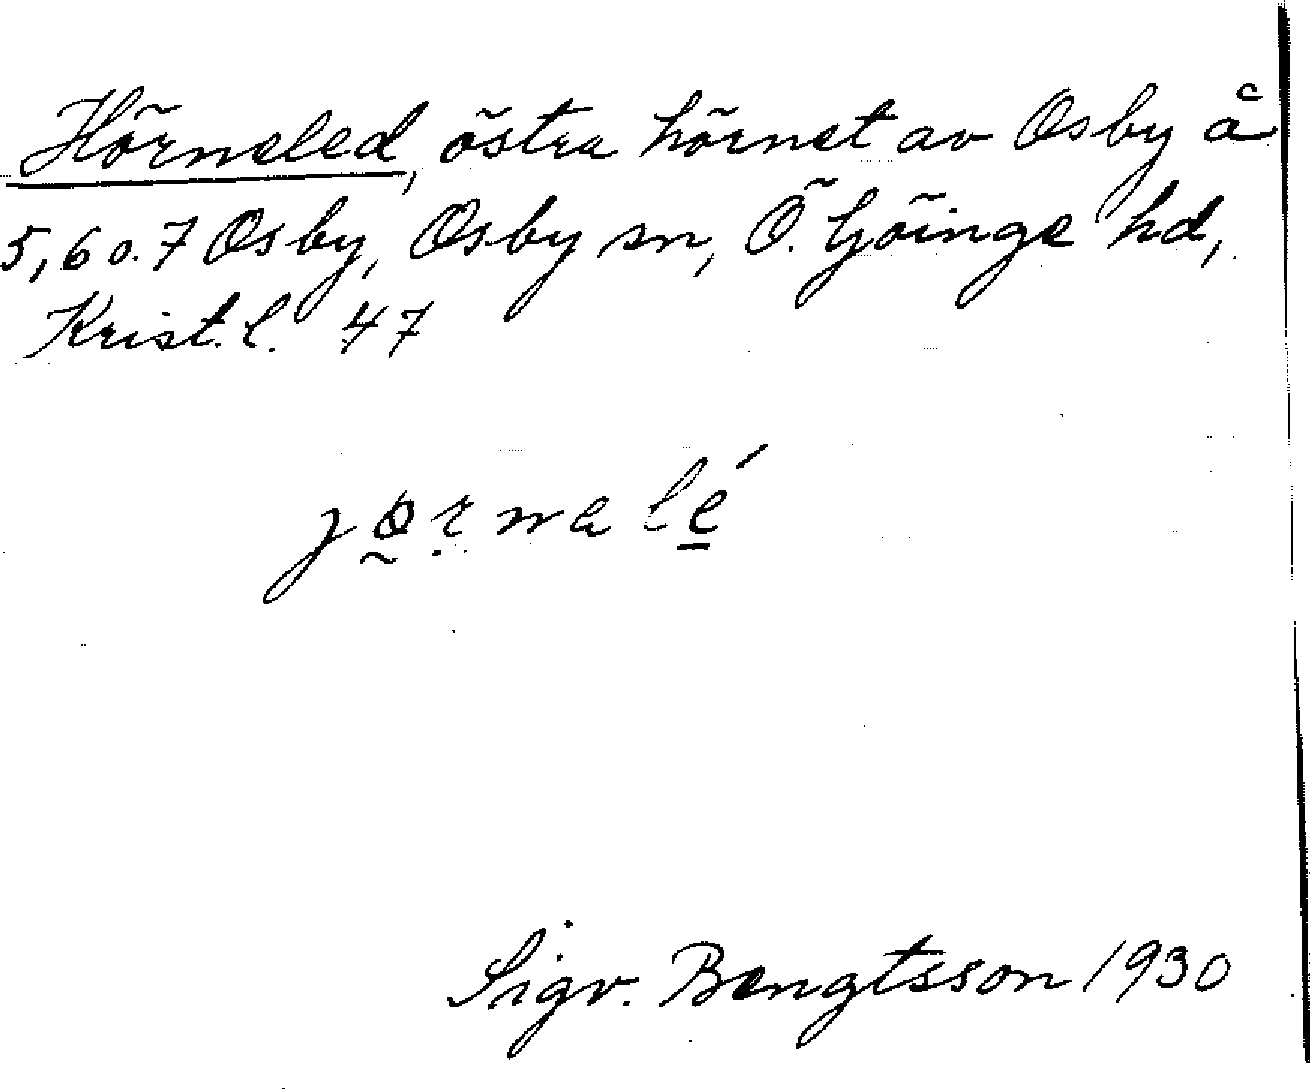 Hörneled, östra hörnet av Osby å
5,6 o. 7 Osby, Osby sn, Ö. Göinge hd,
Krist. l. 47
jørnalé
Sigv. Bengtsson 1930